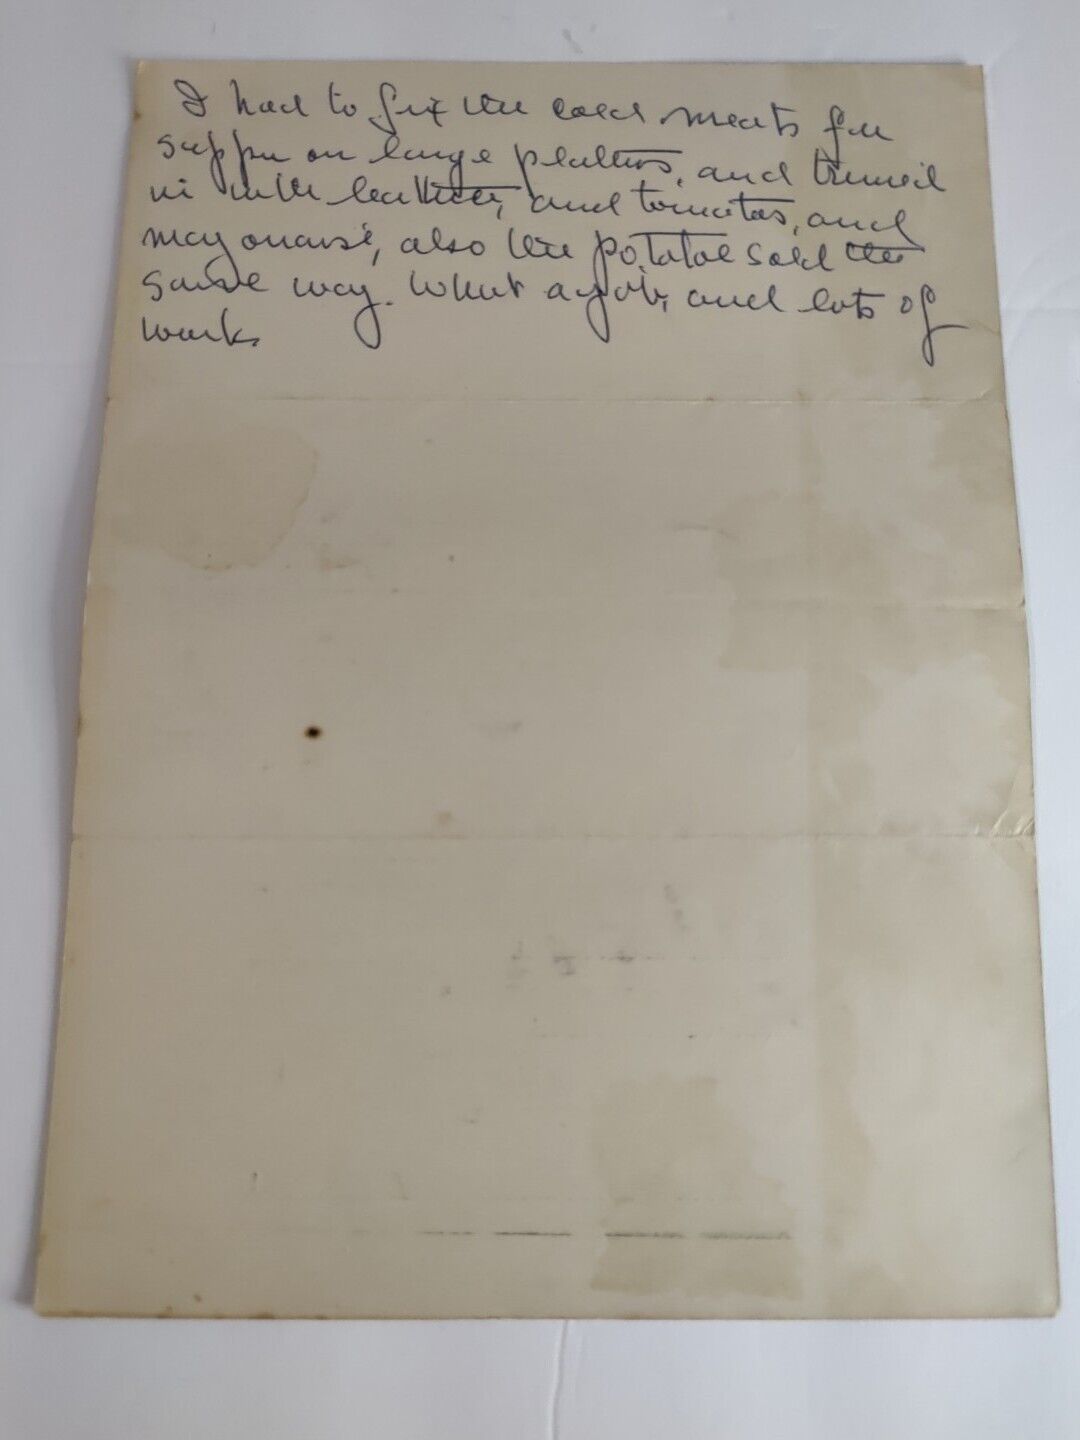 I had to fix the cold meats for
supper on large platters, and trimed
it with lettuce, and tomatos, and
mayonaise, also the potatoe salad the
same way. What a job, and lots of
work.